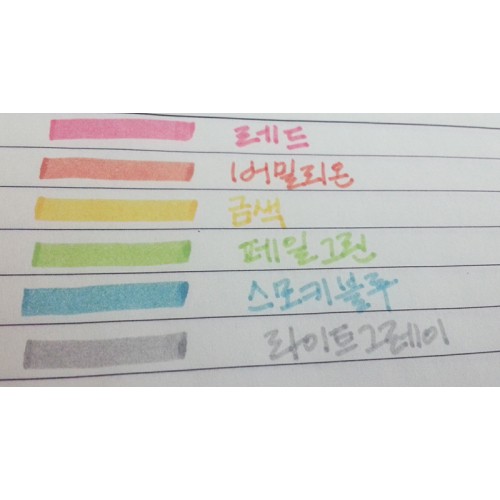 레드
버밀리온
금색
페일그린
스모키블루
라이트그레이